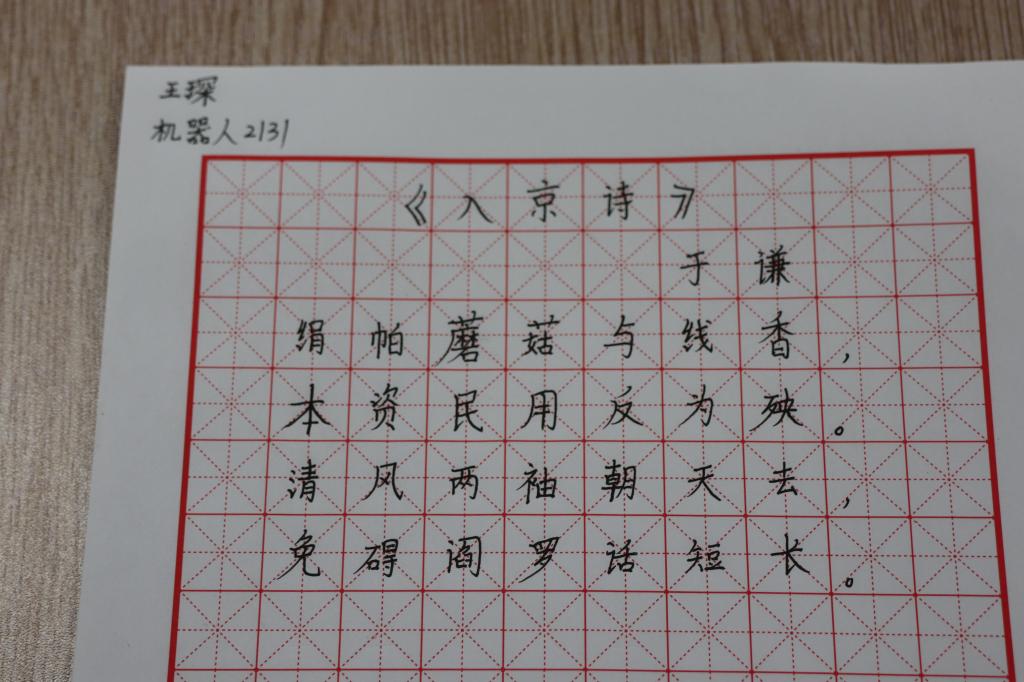 王琛
机器人2131
《入京诗》
于谦
绢帕蘑菇与线香，
本资民用反为殃。
清风两袖朝天去，
免碍阎罗话短长。